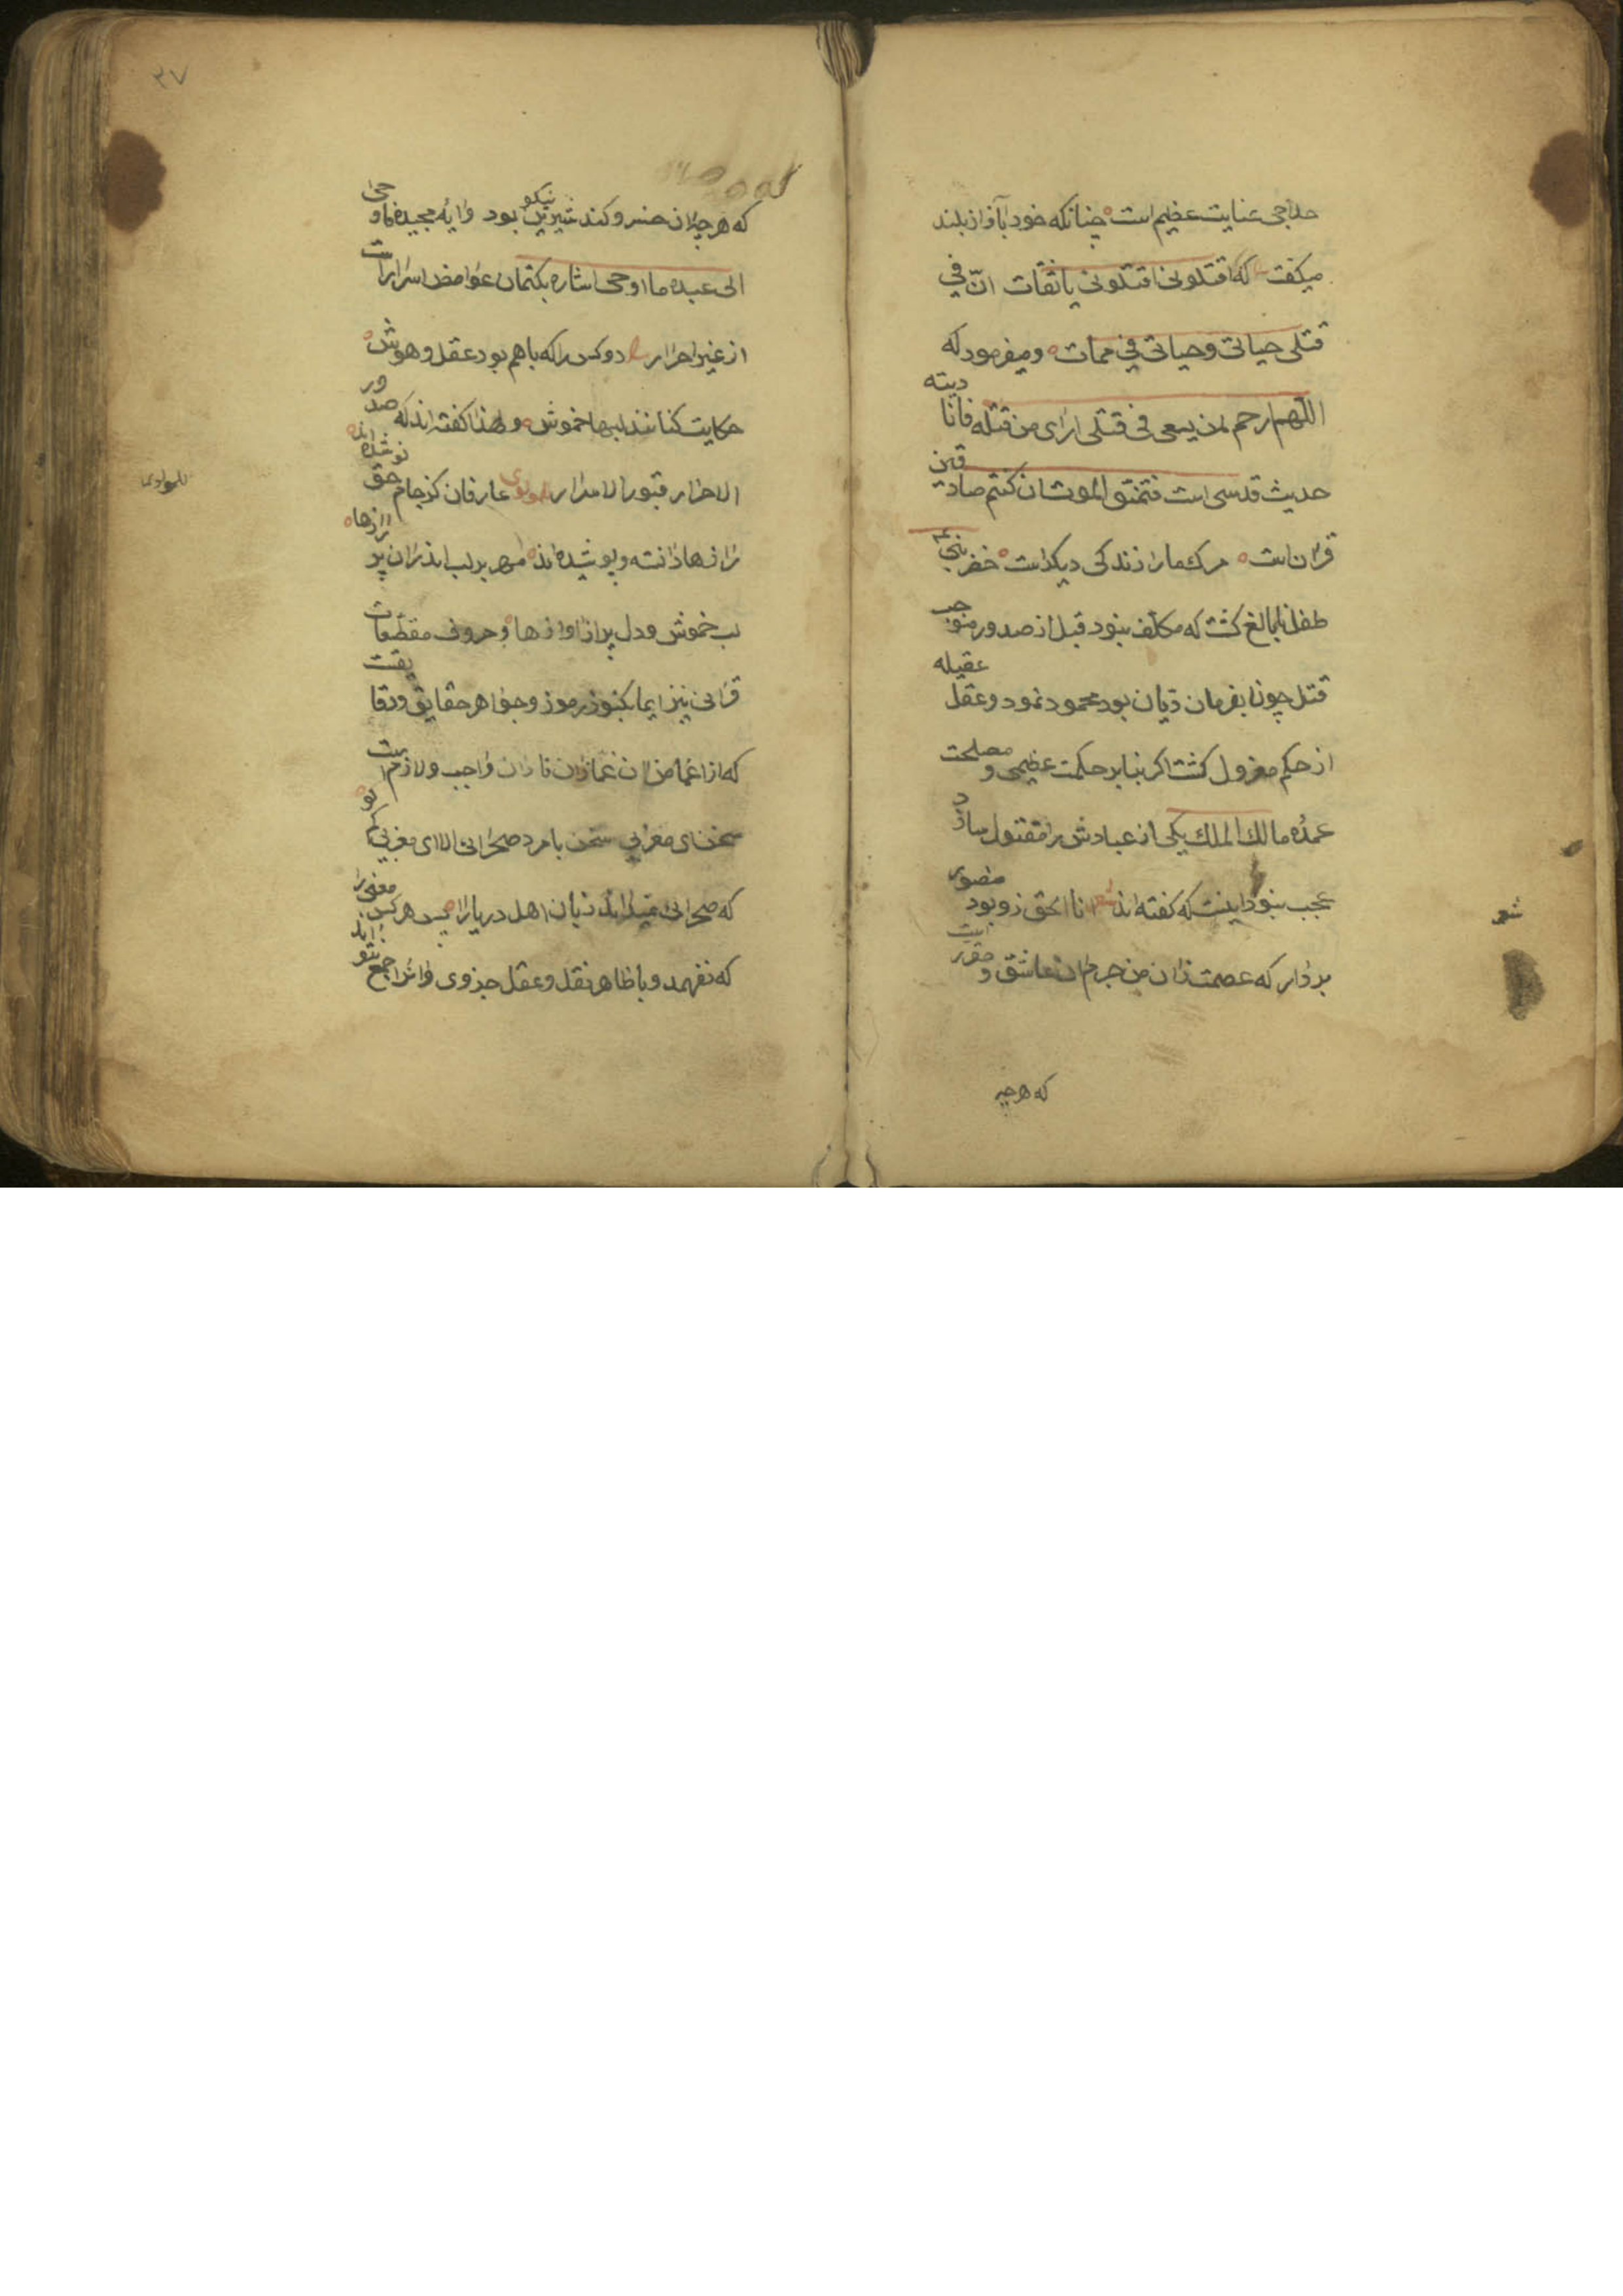 حلاجی عنایت عظیم است چنانکه خود بآواز بلند
میکفت که اقتلونی اقتلونی یا ثقات انّ فی
قتلی حیاتی و حیاتی فی ممات و میفرمود که
اللهم ارحم لمن یسعی فی قتلی ارای من قتله فانا دیته
حدیث قدسی است فتمنوا الموت ان کنتم صادقین
قران است مرک ما را زندکی دیکر است خضر نبی
طفل نابالغ کشت که مکلف نبود قبل از صدور موجب
قتل چون بفرمان دیان بود محمود نمود و عقل عقیله
از حکم معزول کشت اکر بنابر حکمت عظیمی و مصلحت
عمده مالک الملک یکی از عبادش را مقتول سازد
عجب نبود اینست که کفته اند شعر انا الحق زو بود منصور
بر دار که عصمت زان من جرم ان عاشق و مقرر است
شعر
که هرچه
۳۷
که هرچه ان خسرو کند شیرین نیکو بود و ایه مجیده فاوحی
الی عبده ما اوحی اشاره بکتمان غوامض اسرار است
از غیر احرار دو کس را که باهم بود عقل و هوش
حکایت کنانند لبها خموش و لهذا کفته اند که صدور
الاحرار قبور الاسرار للمولوی عارفان کز جام حق نوشیده اند
رازها دانسته و پوشیده اند مهر بر لب اندران پر رازها
لب خموش و دل پر از اوازها و حروف مقطعات
قرانی نیز ایما بکنوز رموز و جواهر حقایق و دقایقست
که از اغماض ان غمازان نادان واجب و لازم است
سخن ای مغربی سخن با مرد صحرائی الا ای مغربی کم کو
که صحرائی نمیداند زبان اهل دریا را پس هر کس معنی را
که نفهمد و با ظاهر نقل و عقل جزوی وانرا جمع نتواند
للمولوی